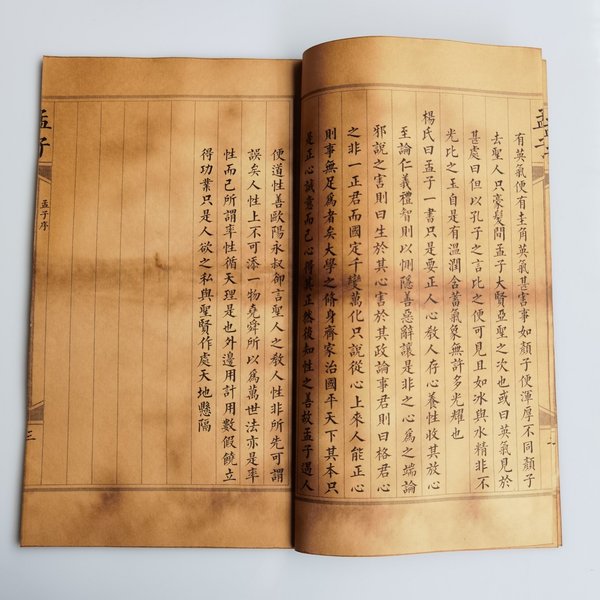 孟子
有英氣便有圭角英氣甚害事如顏子便渾厚不同顏子
去聖人只豪髮間孟子大賢亞聖之次也或曰英氣見於
甚處曰但以孔子之言比之便可見且如冰與水精非不
光比之玉自是有溫潤含蓄氣象無許多光耀也
楊氏曰孟子一書只是要正人心教人存心養性收其放心
至論仁義禮智則以惻隱善惡辭讓是非之心為之端論
邪說之害則曰生於其心害於其政論事君則曰格君心
之非一正君而國定千變萬化只說從心上來人能正心
則事無足為者矣大學之脩身齊家治國平天下其本只
是正心誠意而已心得其正然後知性之善故孟子遇人
便道性善歐陽永叔卻言聖人之教人性非所先可謂
誤矣人性上不可添一物堯舜所以為萬世法亦是率
性而已所謂率性循天理是也外邊用計用數假饒立
得功業只是人欲之私與聖賢作處天地懸隔
孟子
孟子序
三